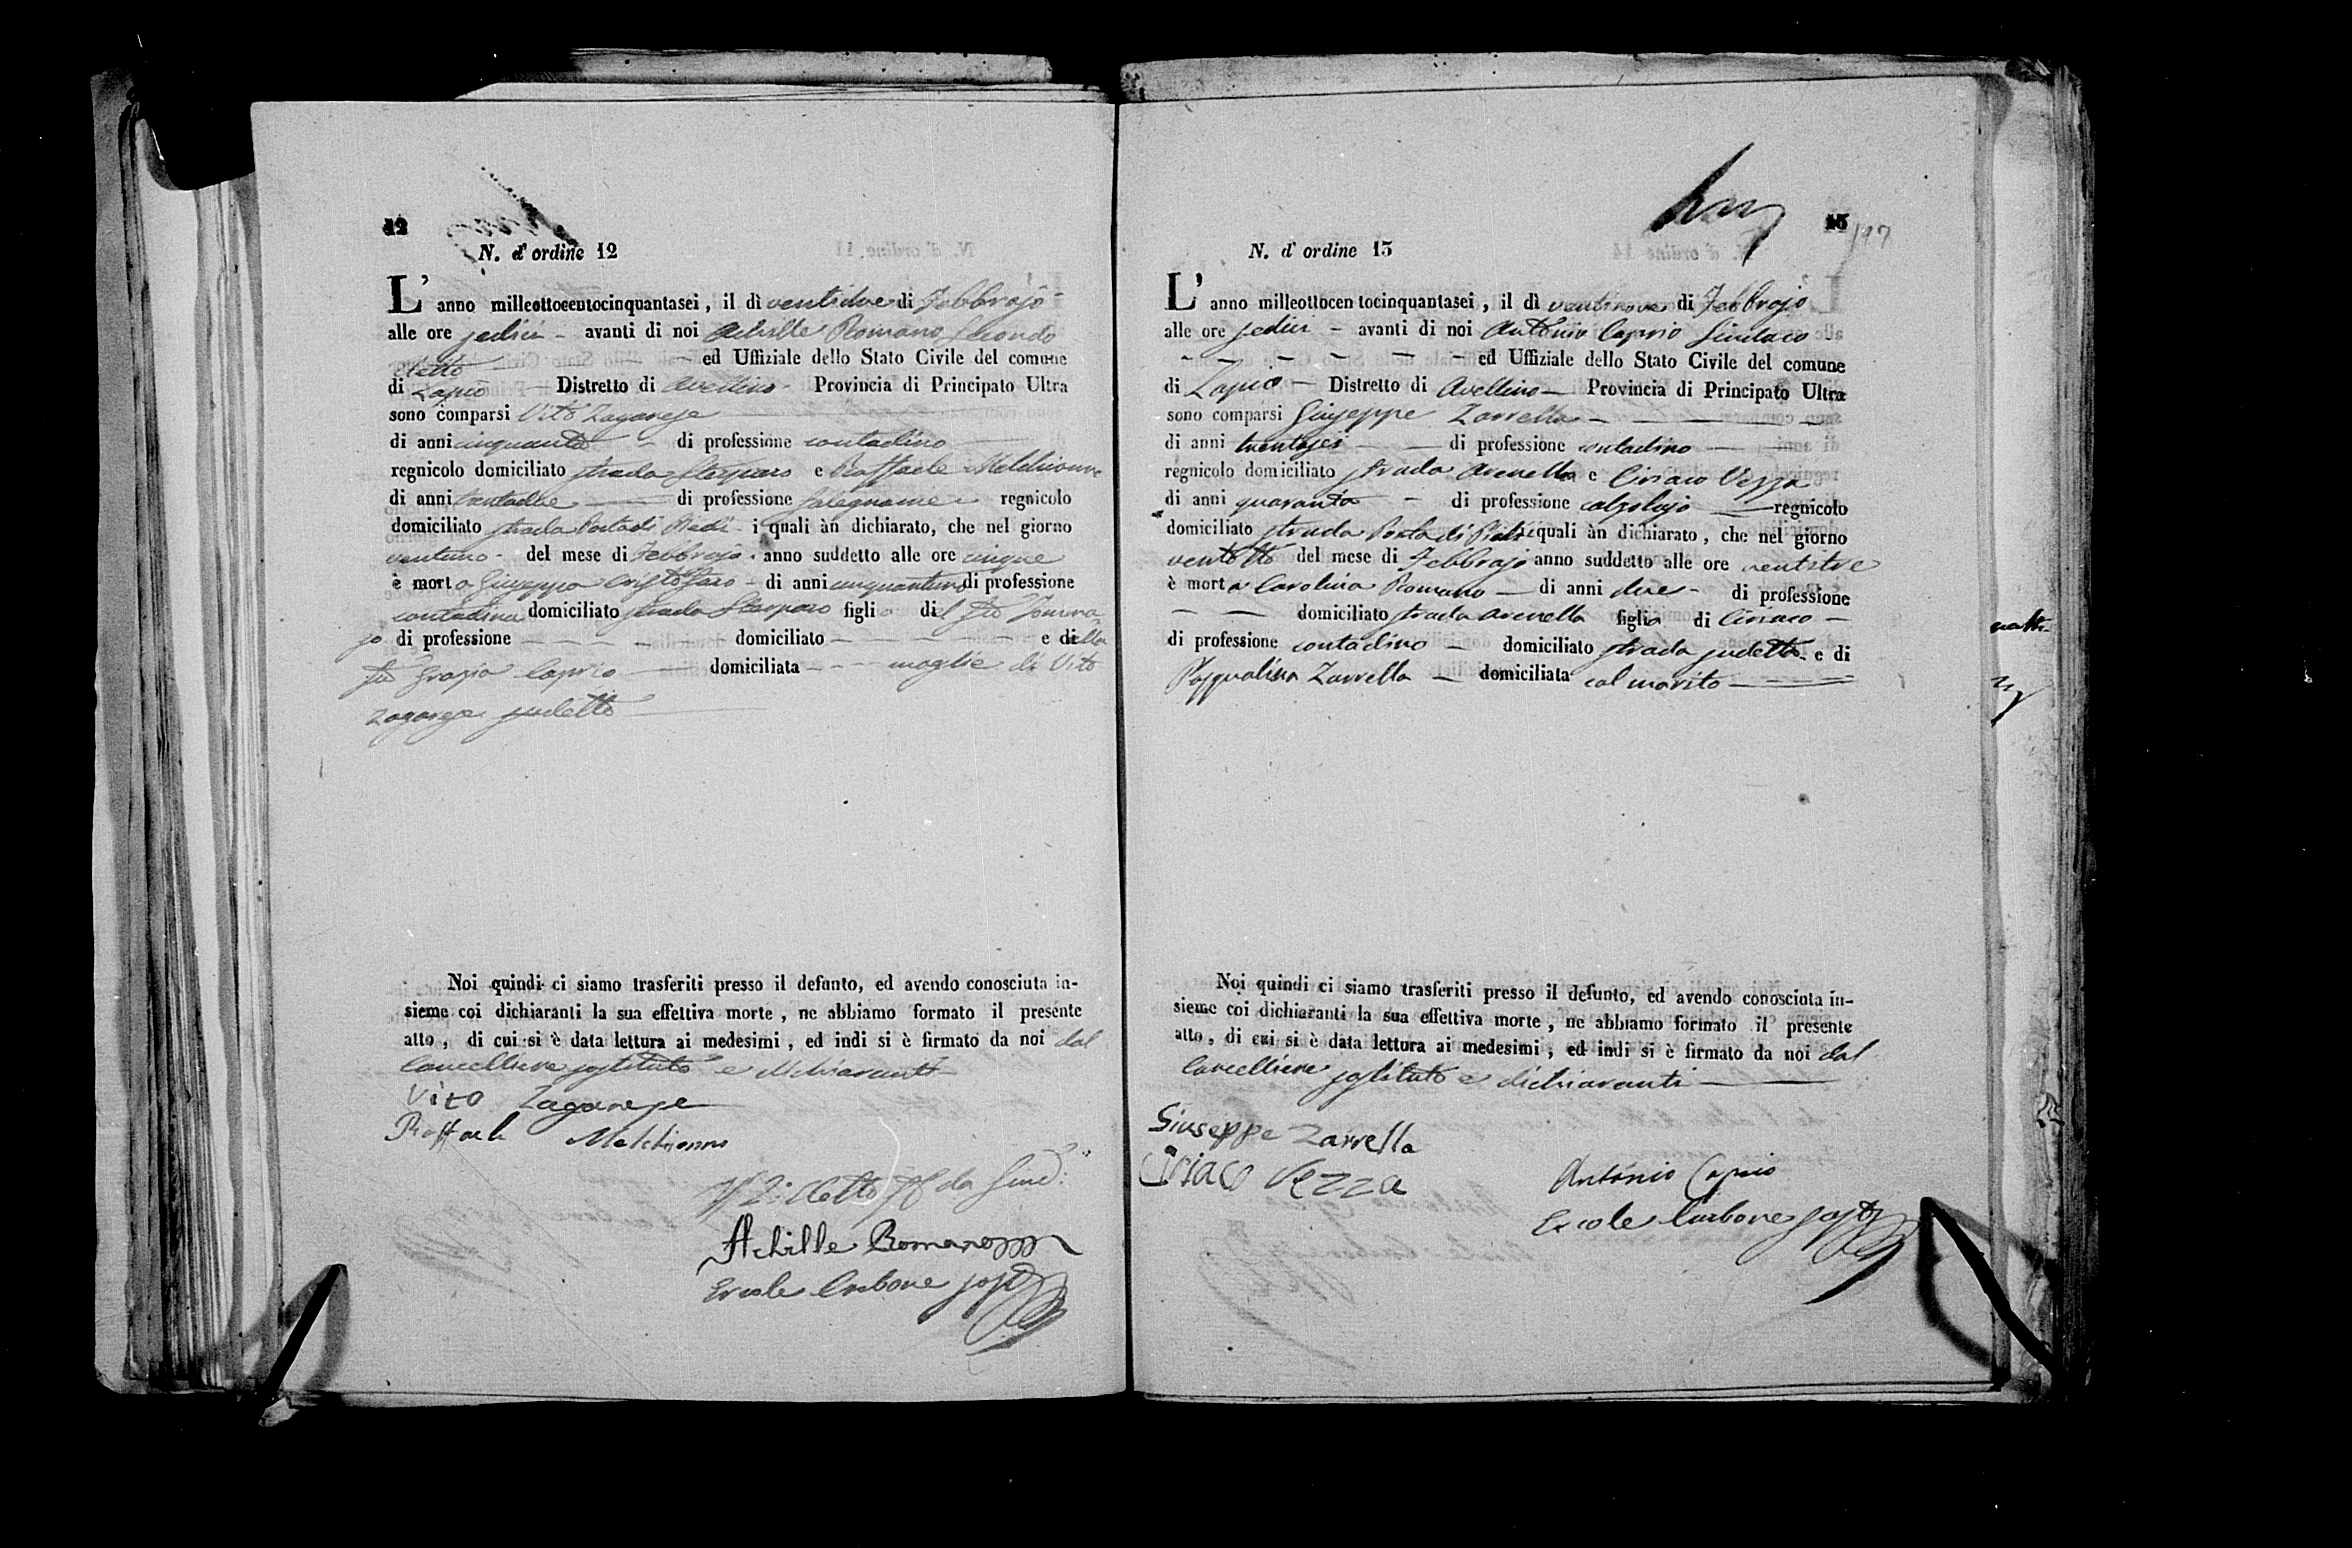 12
N. d' ordine 12
L' anno milleottocentocinquantasei, il dì ventidue di Febbrajo
alle ore sedici - avanti di noi Achille Romano Secondo
eletto — ed Uffiziale dello Stato Civile del comune
di Lapio — Distretto di Avellino - Provincia di Principato Ultra
sono comparsi Vito Zagarese
di anni cinquanta - di professione contadino
regnicolo domiciliato strada e Raffaele Melchionne
di anni — di professione falegname regnicolo
domiciliato strada Porta di - i quali àn dichiarato, che nel giorno
ventuno - del mese di Febbrajo anno suddetto alle ore cinque
è morta Giuseppa Cristofaro - di anni cinquantuno di professione
contadina domiciliato strada figlia del fu Tomma
jo di professione — — — domiciliato — — — e della
fu Grazia Caprio — domiciliata - - - moglie di Vito
Zagarese sudetto
Noi quindi ci siamo trasferiti presso il defunto, ed avendo conosciuta in-
sieme coi dichiaranti la sua effettiva morte, ne abbiamo formato il presente
atto, di cui si è data lettura ai medesimi, ed indi si è firmato da noi dal
Cancelliere sostituto e dichiaranti
Vito Zagarese
Raffaele Melchionne
Il 2: eletto da Sind:
Achille Romano
Ercole Carbone sost
13
197
N. d' ordine 13
L' anno milleottocentocinquantasei, il dì ventinove di Febbrajo
alle ore sedici - avanti di noi Antonio Caprio Sindaco
— — — — — — ed Uffiziale dello Stato Civile del comune
di Lapio — Distretto di Avellino — Provincia di Principato Ultra
sono comparsi Giuseppe Zarrella — — — — —
di anni trentasei — di professione contadino —
regnicolo domiciliato strada Arenella e Ciriaco Vezza
di anni quaranta - di professione calzolajo — regnicolo
domiciliato strada Porta di i quali àn dichiarato, che nel giorno
ventotto del mese di Febbrajo anno suddetto alle ore ventitre
è morta Carolina Romano — di anni due - di professione
— — domiciliato strada Arenella figlia di Ciriaco —
di professione contadino — domiciliato strada sudetta - e di
Pasqualina Zarrella — domiciliata col marito —
Noi quindi ci siamo trasferiti presso il defunto, ed avendo conosciuta in-
sieme coi dichiaranti la sua effettiva morte, ne abbiamo formato il presente
atto, di cui si è data lettura ai medesimi, ed indi si è firmato da noi dal
Cancelliere sostituto e dichiaranti —
Giuseppe Zarrella
Ciriaco Vezza
Antonio Caprio
Ercole Carbone sost